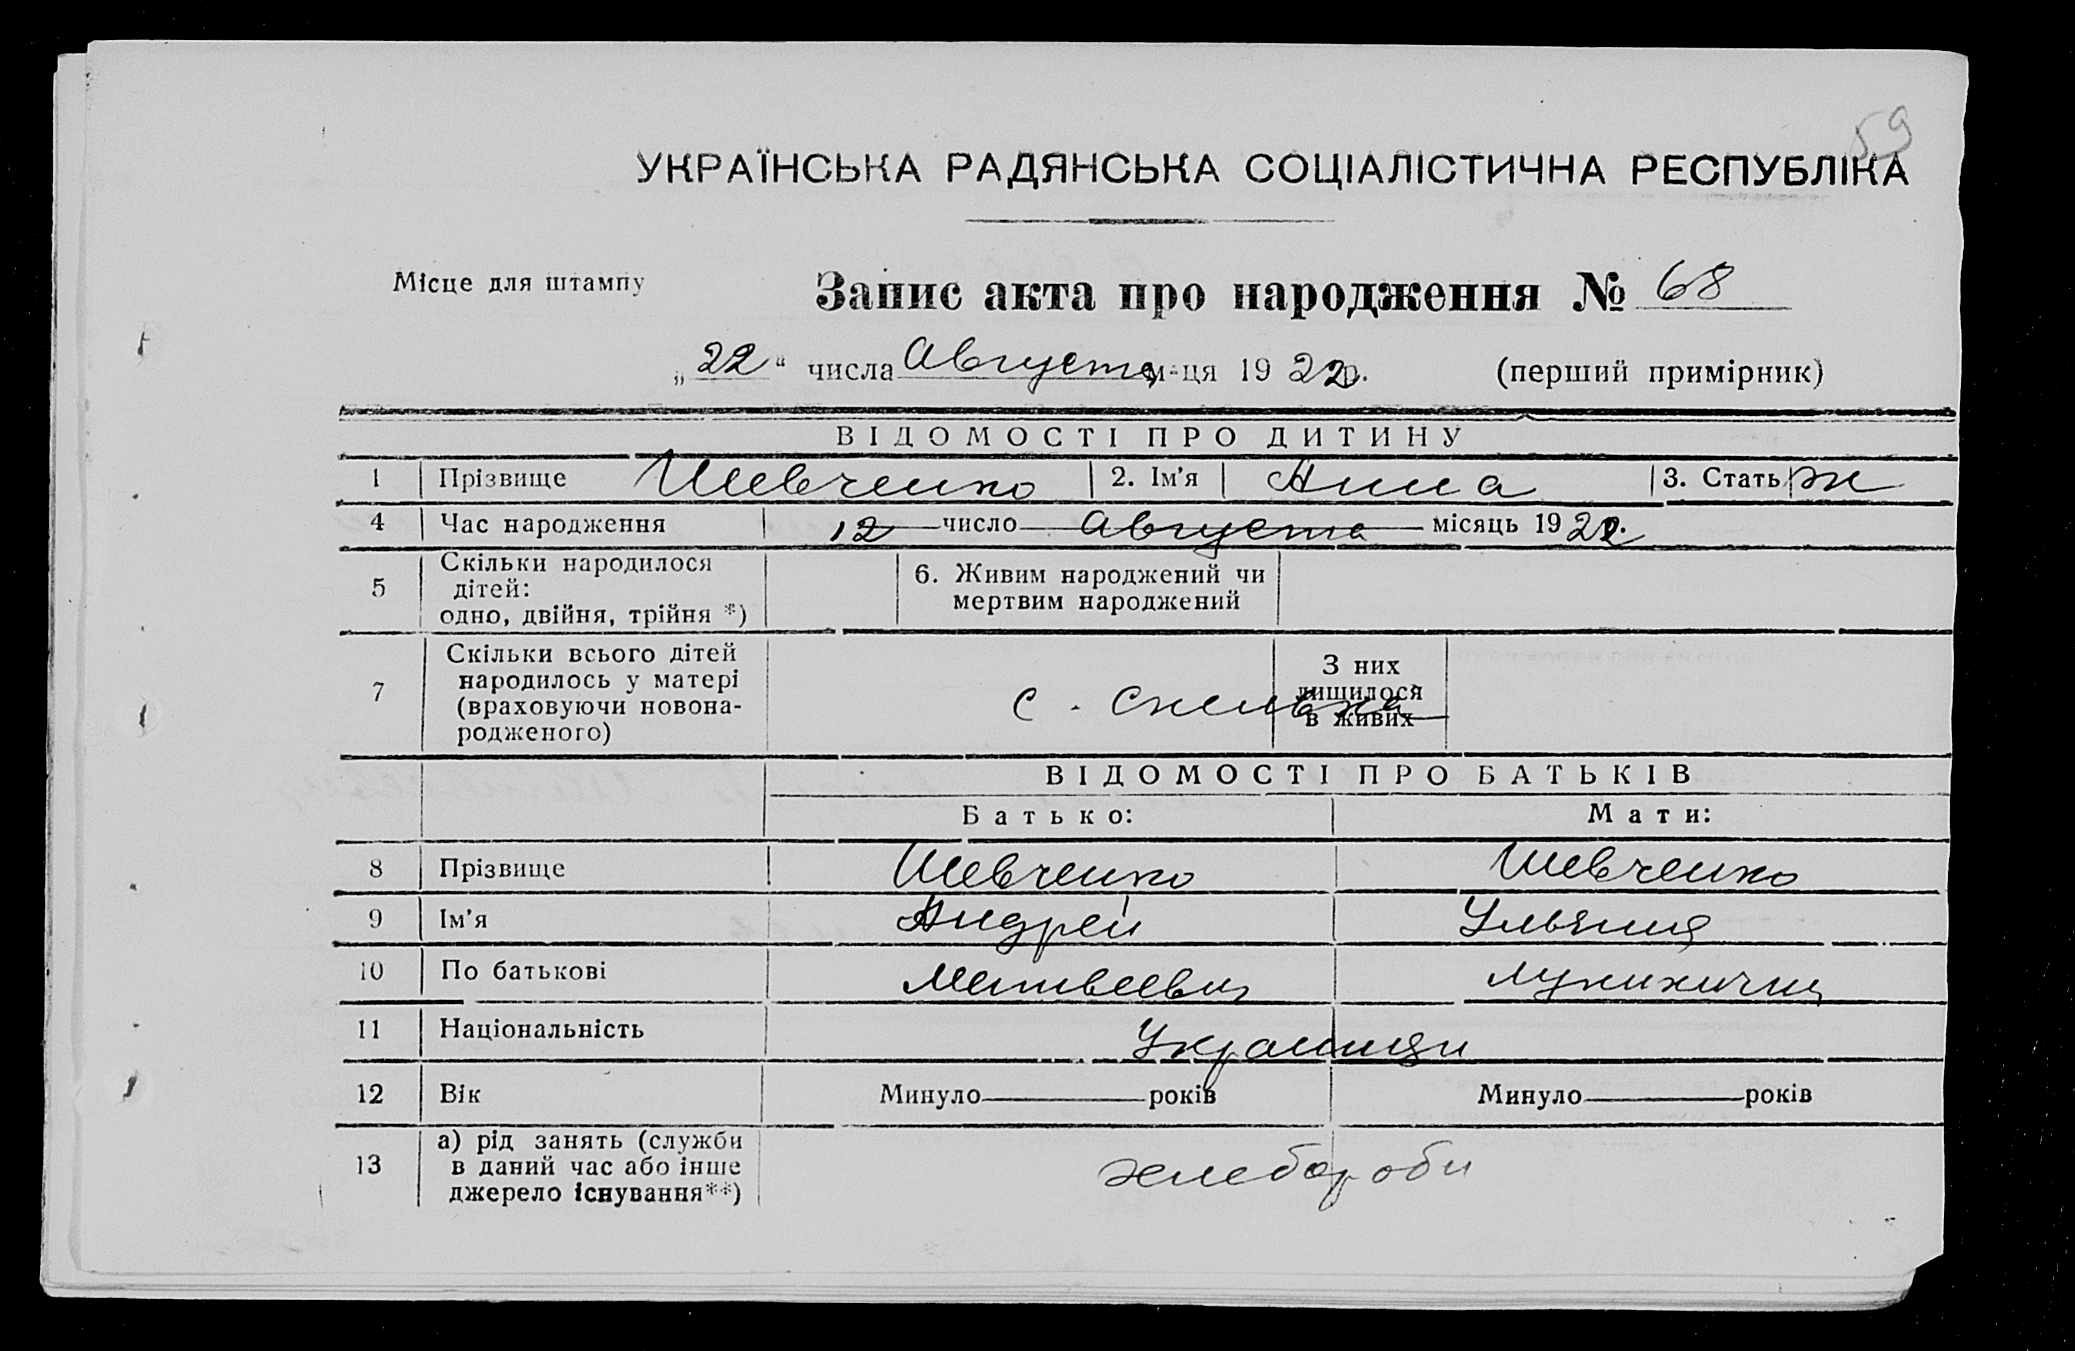 59
УКРАЇНСЬКА РАДЯНСЬКА СОЦІАЛІСТИЧНА РЕСПУБЛІКА
Місце для штампу
Запис акта про народження № 68
„22" числа Августа м-ця 1922р. (перший примірник)
ВІДОМОСТІ ПРО ДИТИНУ
1 Прізвище Шевченко 2. Ім'я Анна 3. Стать ж
4 Час народження 12 число Августа місяць 1922р.
5 Скільки народилося дітей: одно, двійня, трійня *) 6. Живим народжений чи мертвим народжений
7 Скільки всього дітей народилось у матері (враховуючи новонародженого) с. Скельна З них лишилося в живих
ВІДОМОСТІ ПРО БАТЬКІВ
Батько: Мати:
8 Прізвище Шевченко Шевченко
9 Ім'я Андрей Ульяна
10 По батькові Матвеевич
11 Національність Украинци
12 Вік Минуло років Минуло років
13 а) рід занять (служби в даний час або інше джерело існування**) хлебороби